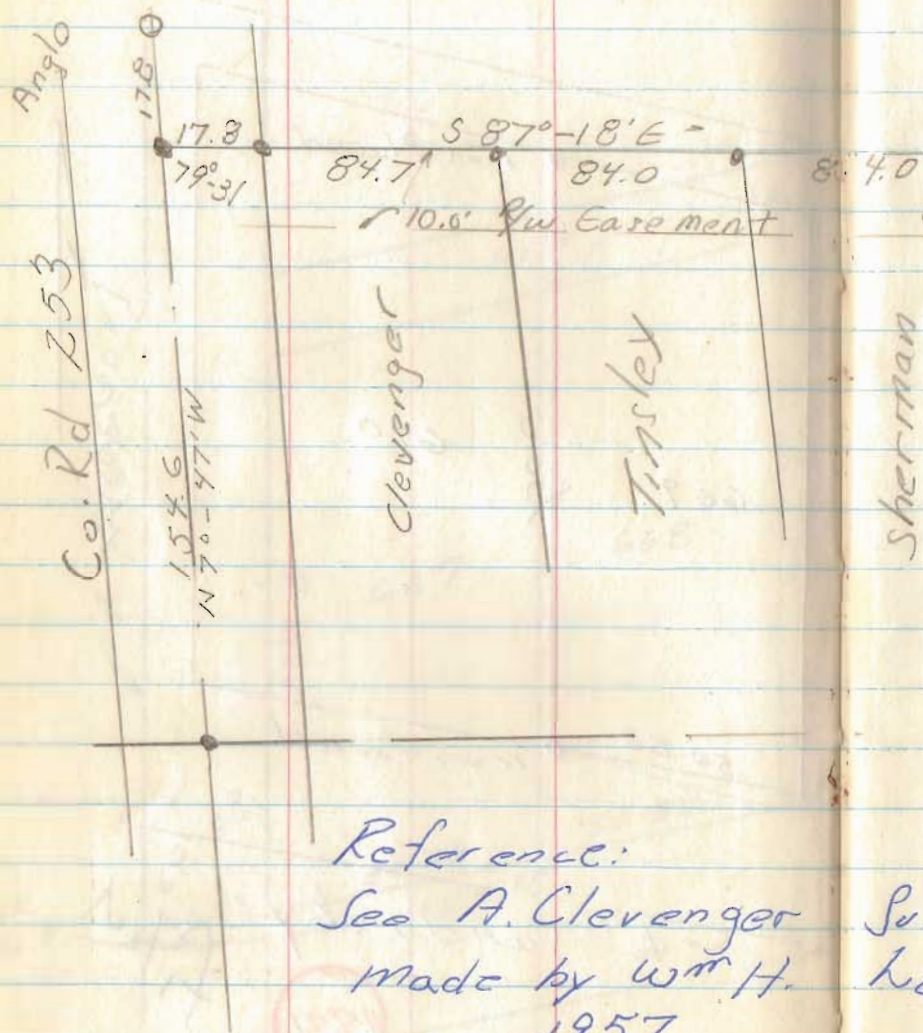 Anglo
178
17.8
S 87°-18'E -
79°-31
84.7
84.0
84.0
10.0' R/W Easement
Co. Rd 253
154.6
N 7°-47'W
Clevenger
Tinsley
Sherman
Reference:
See A. Clevenger Su
made by Wm H. La
1957